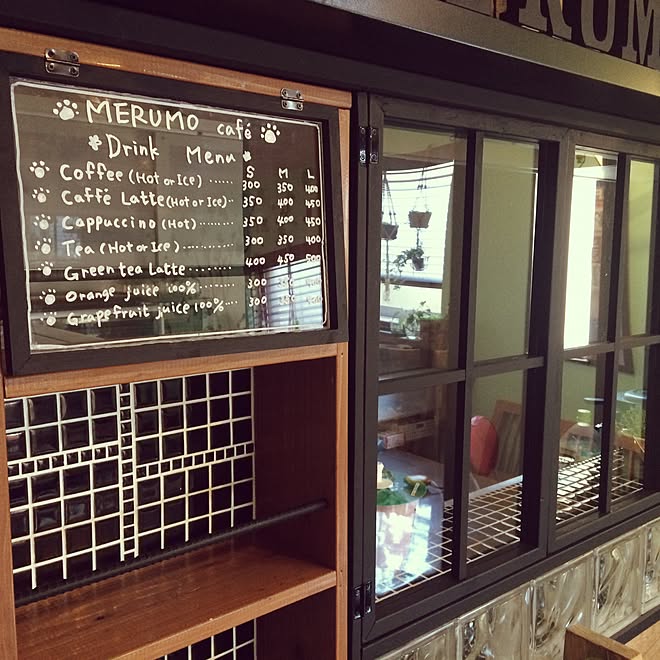 RUM
MERUMO café
Drink Menu
S M L
Coffee (Hot or Ice) ...... 300 350 400
Caffé Latte (Hot or Ice) .. 350 400 450
Cappuccino (Hot) 350 400 450
Tea (Hot or Ice) ........ 300 350 400
Green tea Latte ....... 400 450 500
Orange juice 100% ...... 300
Grapefruit juice 100% .... 300